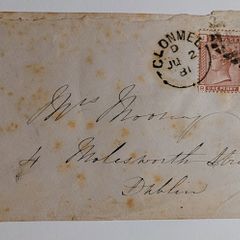 CLONMEL
D
JU 2
81
Mrs Mooney
4 Molesworth Stre
Dublin